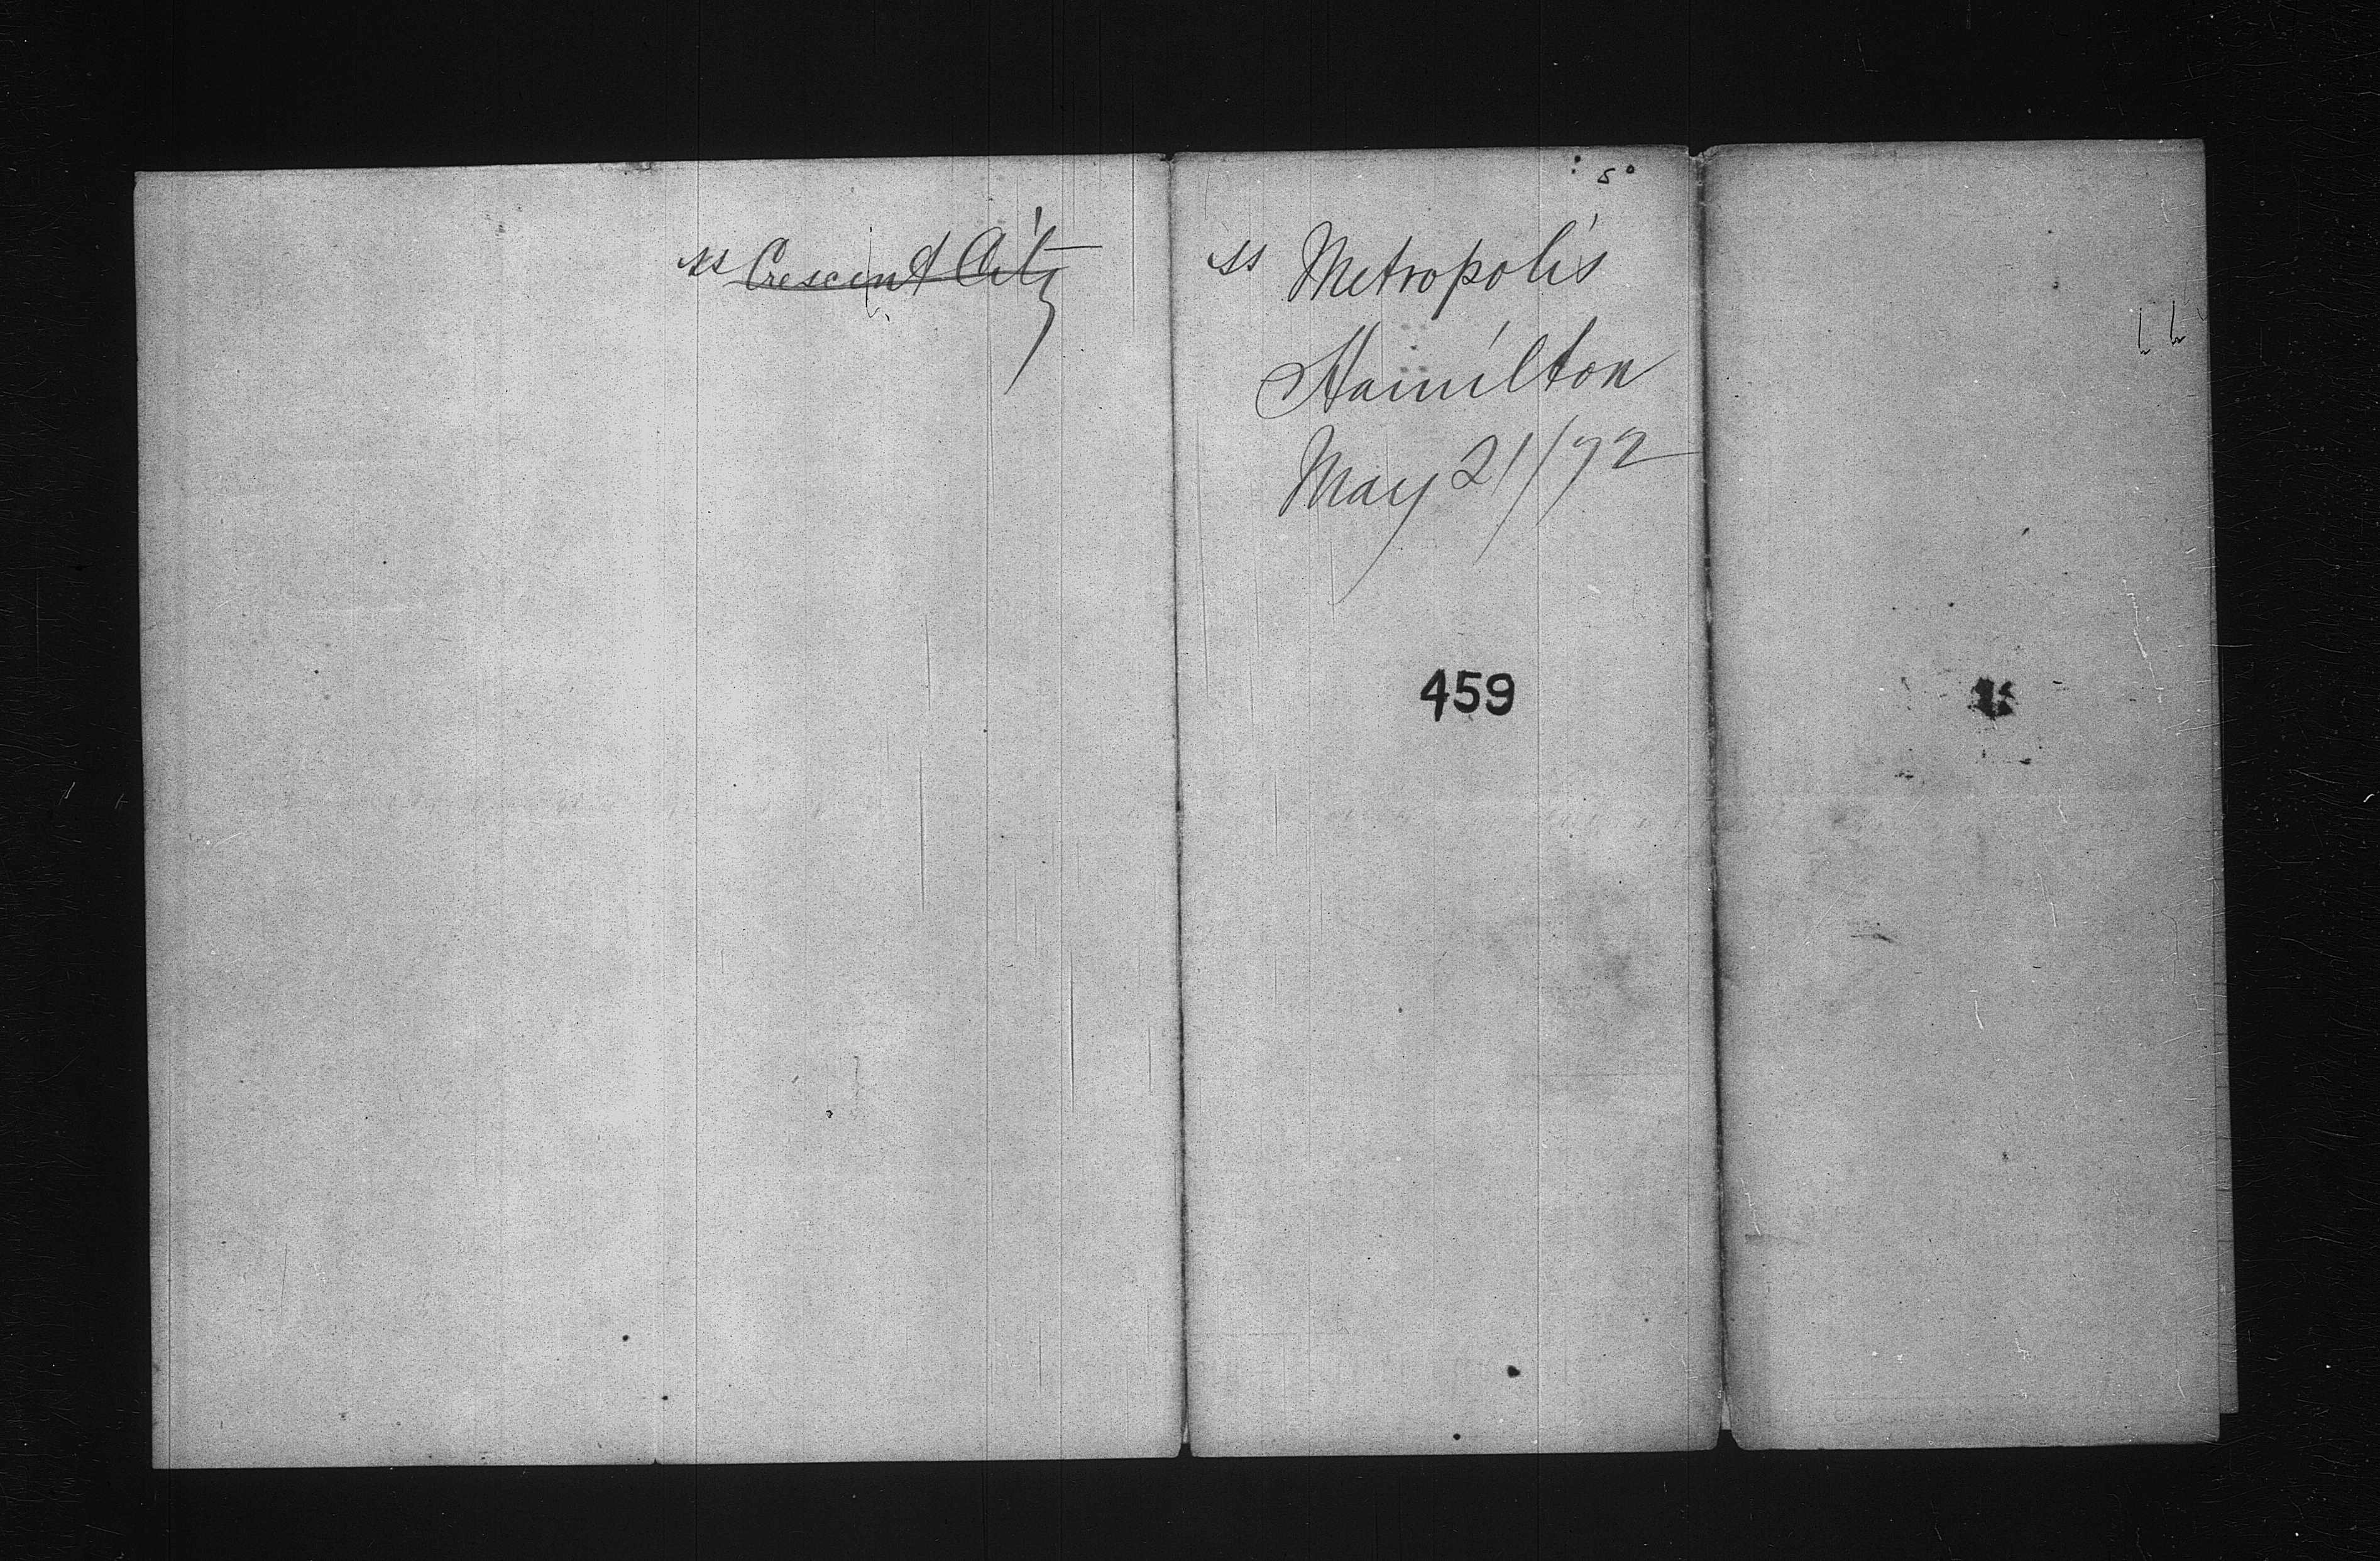 ss Crescent City
ss Metropolis
Hamilton
May 21/72
459